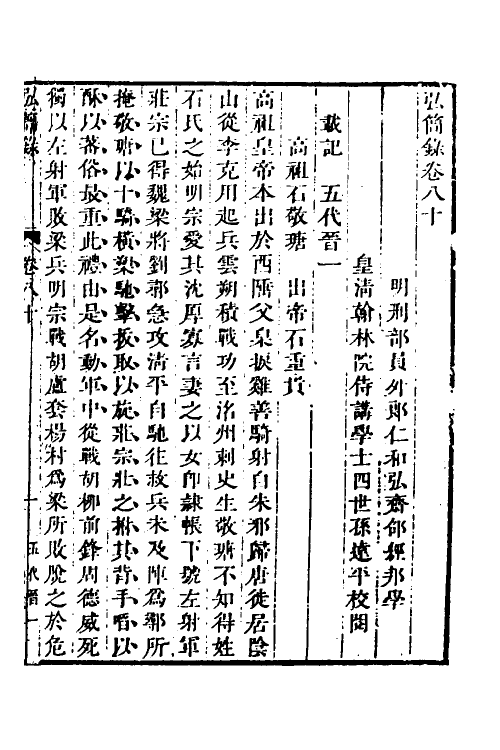 弘簡錄卷八十
明刑部員外郎仁和弘齋邵經邦學
皇清翰林院侍講學士四世孫遠平校閱
載記　五代晉一
高祖石敬瑭　出帝石重貴
高祖皇帝本出於西陲父臬捩雞善騎射自朱邪歸唐徙居陰
山從李克用起兵雲朔積戰功至洺州刺史生敬瑭不知得姓
石氏之始明宗愛其沈厚寡言妻之以女即隸帳下號左射軍
莊宗已得魏梁將劉鄩急攻清平自馳往救兵未及陣為鄩所
掩敬瑭以十騎橫槊馳擊援取以旋莊宗壯之拊其背手啗以
酥以蕃俗最重此禮由是名動軍中從戰胡柳前鋒周德威死
獨以左射軍敗梁兵明宗戰胡盧套楊村為梁所敗脫之於危
弘簡錄　卷八十　一　五代晉一